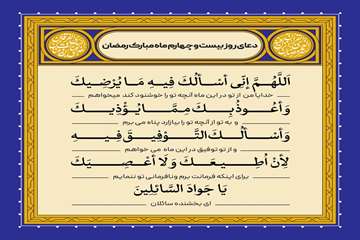 دعای روز بیست و چهارم ماه مبارک رمضان
اَللّهُمَّ اِنّی اَسْاَلُکَ فِیهِ مَا یُرْضِیکَ
خدایا من از تو در این ماه آنچه تو را خوشنود کند میخواهم
وَ اَعُوذُ بِکَ مِمَّا یُؤْذِیکَ
و به تو از آنچه تو را بیازارد پناه می برم
وَ اَسْاَلُکَ التَّوْفِیقَ فِیهِ
و از تو توفیق در این ماه می خواهم
لِاَنْ اُطِیعَکَ وَ لَا اَعْصِیَکَ
برای اینکه فرمانت برم و نافرمانی تو ننمایم
یَا جَوادَ السَّائِلِینَ
ای بخشنده سائلان